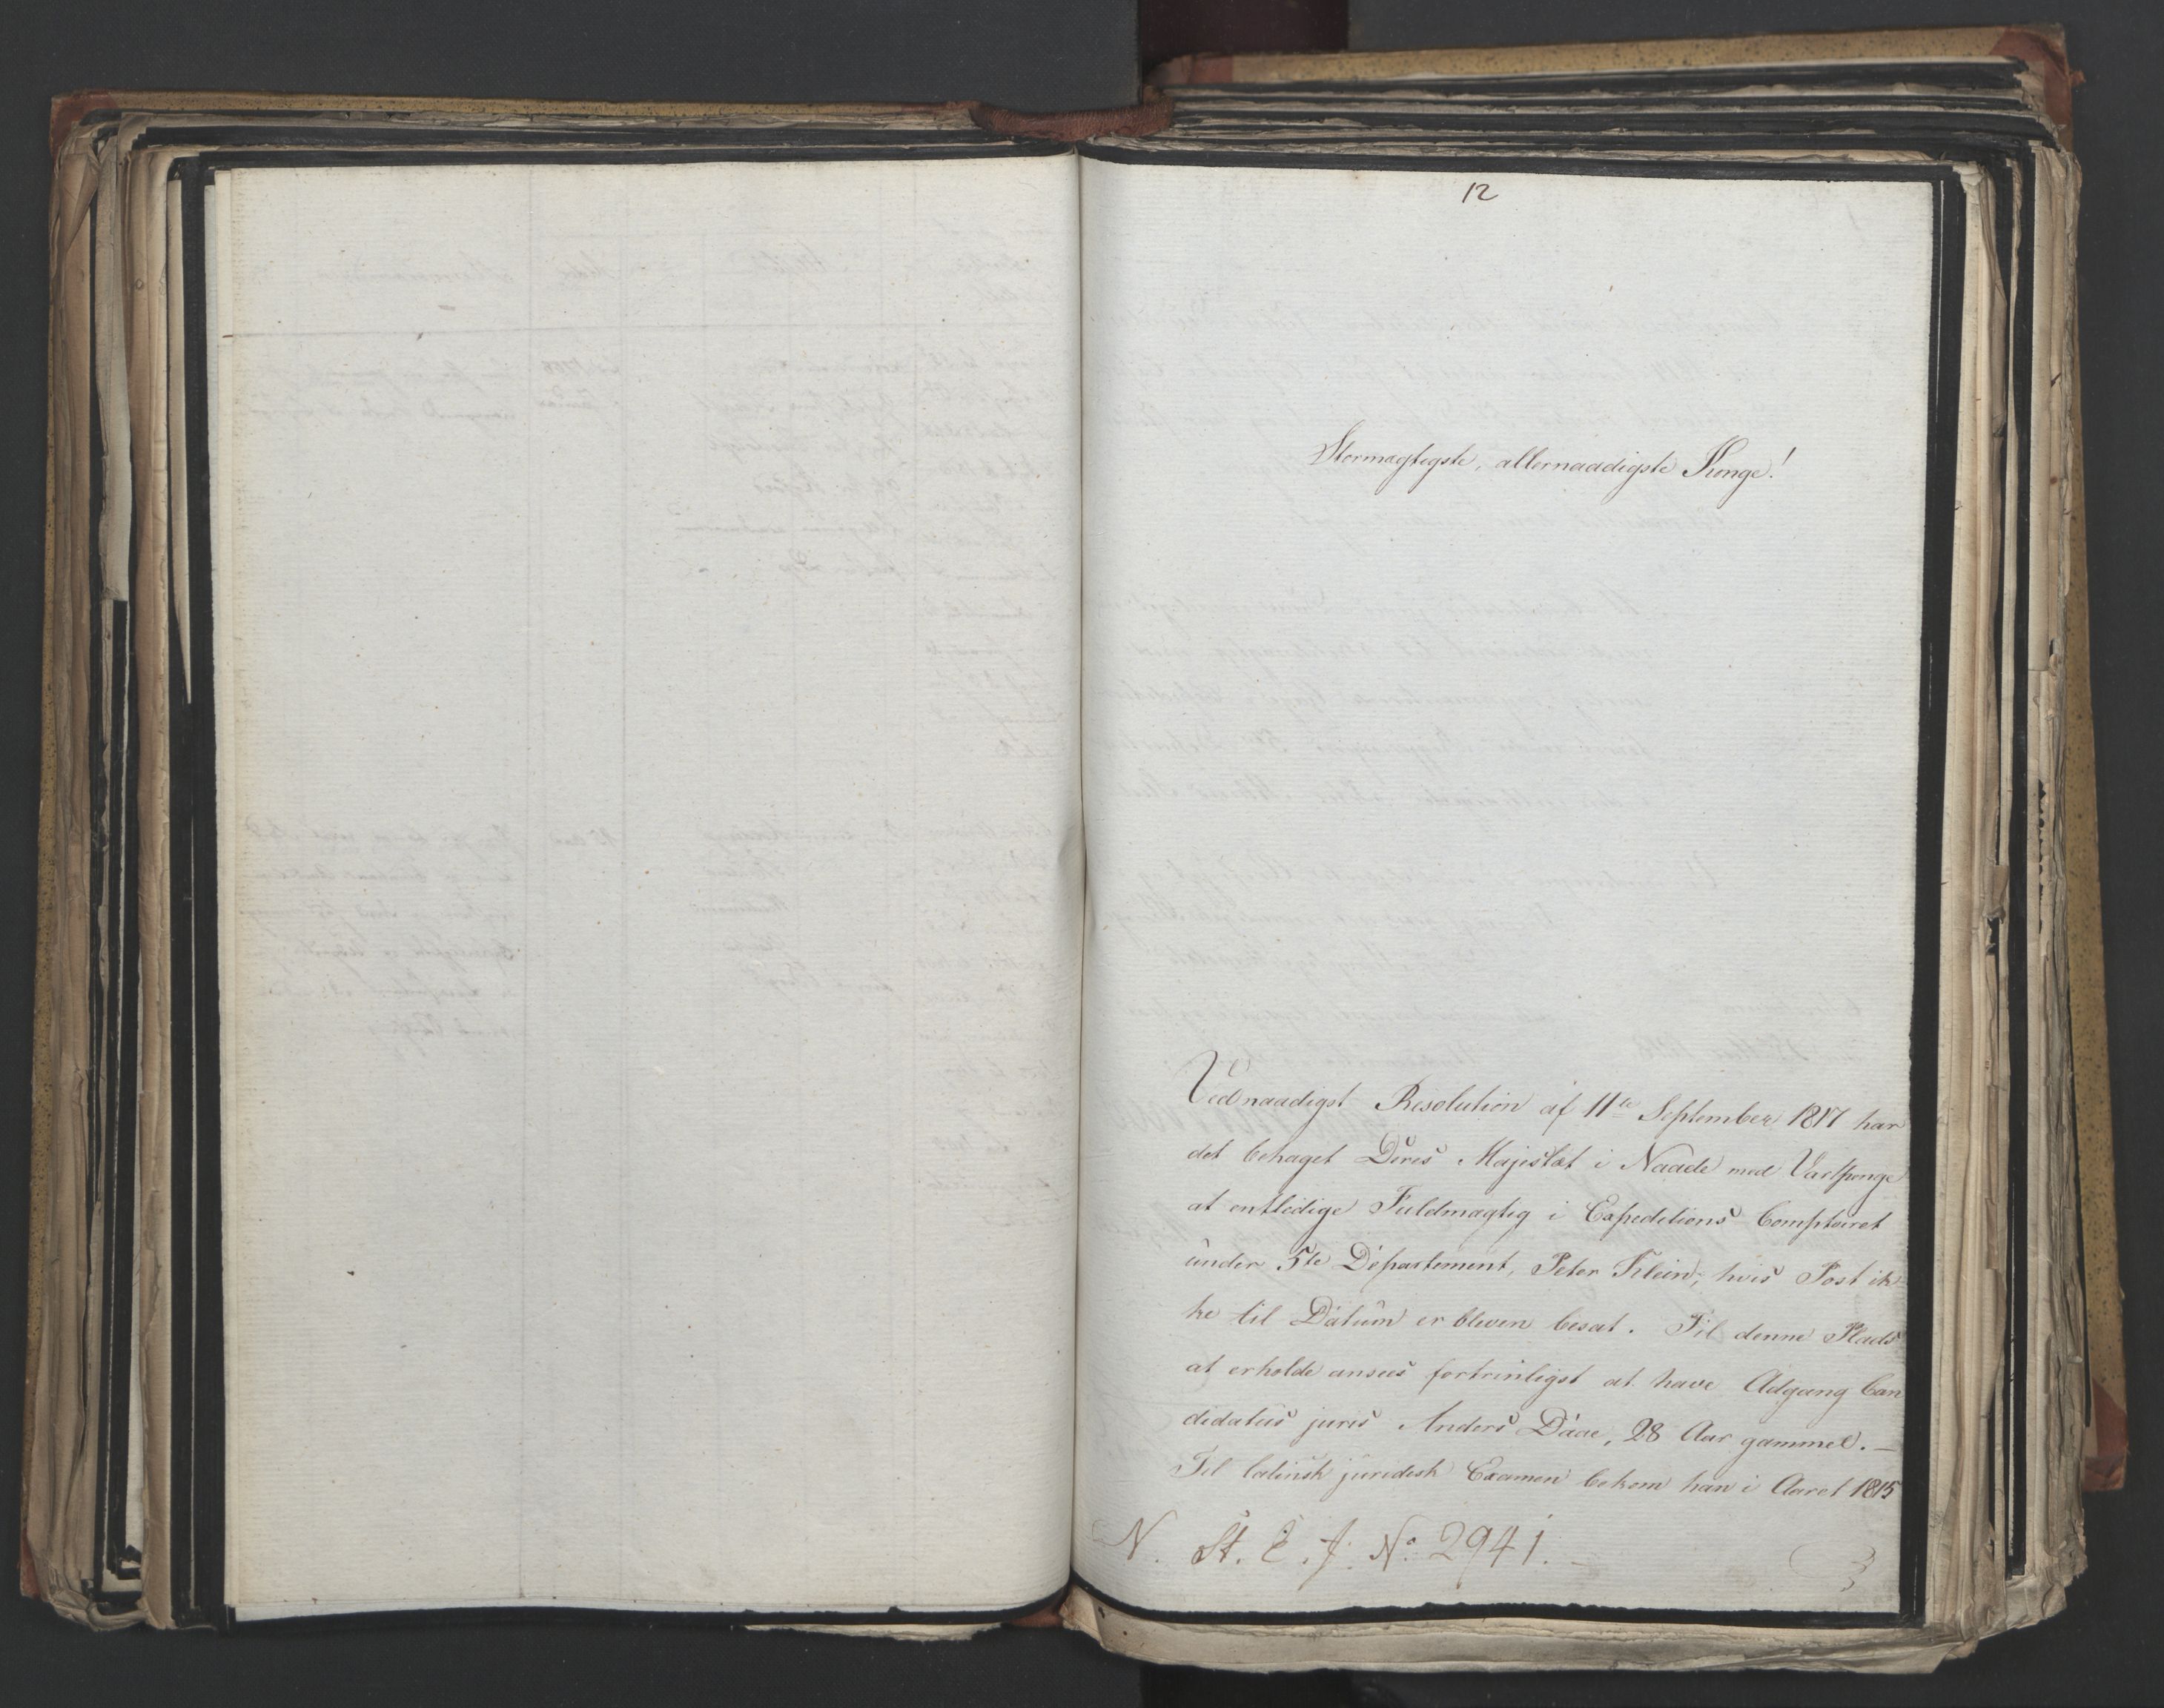 12
Stormægtigste, allernaadigste Konge!
Ved naadigst Resolution af 11te September 1817 har
det behaget Deres Majestæt i Naade med Vartpenge
at entledige Fuldmægtig i Expeditions Comptoiret
under 5te Departement, Peter Klein, hvis Post ik-
ke til Datum er bleven besat. Til denne Plads
at erholde ansees fortrinligst at have Adgang Can
didatus juris Anders Daae, 28 Aar gammel. —
Til latinsk juridisk Examen bekom han i Aaret 1815
N. St. E. J. No. 2941. —